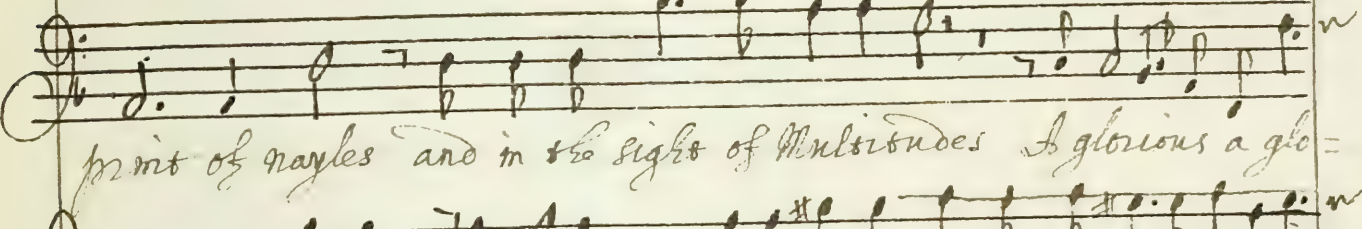 print of nayles and in the sight of Multitudes A glorious a glo=